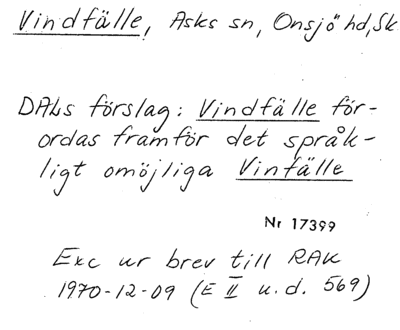 Vindfälle, Asks sn, Onsjö hd, Sk
DALs förslag: Vindfälle för-
ordas framför det språk-
ligt omöjliga Vinfälle
Nr 17399
Exc ur brev till RAK
1970-12-09 (E II u.d. 569)